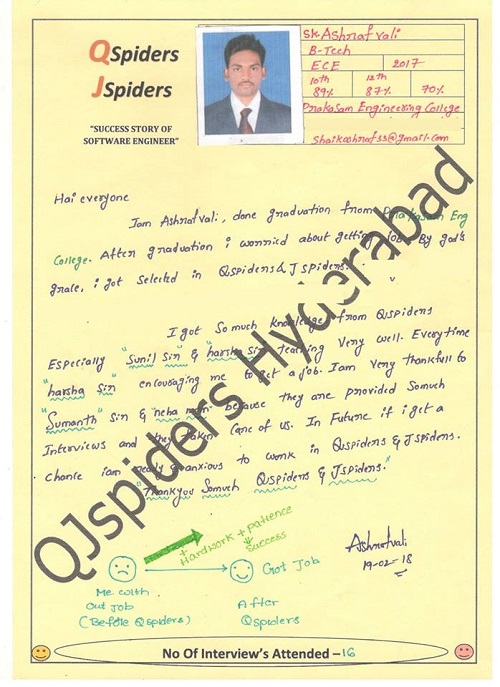 QSpiders
JSpiders
"SUCCESS STORY OF
SOFTWARE ENGINEER"
SK.Ashraf vali
B-Tech
ECE 2017
10th 12th
89% 87% 70%
Prakasam Engineering College
shaikashraf33@gmail.com
Hai everyone
Iam Ashrafvali, done graduation from Prakasam Eng
College. After graduation i worried about getting job. By god's
grace, i got selected in Qspiders & Jspiders.
I got so much knowledge from Qspiders
Especially "Sunil sir" & harsha sir teaching very well. Everytime
"harsha sir" encouraging me to get a job. Iam very thankfull to
"Sumanth" sir & neha mam. because they are provided somuch
Interviews and they taken care of us. In Future if i get a
chance iam anxious to work in Qspiders & Jspiders.
"Thankyou somuch Qspiders & Jspiders."
Hardwork + patience
success
Got Job
Me with
out job
(Before Qspiders)
After
Qspiders
Ashrafvali
19-02-18
No Of Interview's Attended – 16
QJspiders Hyderabad